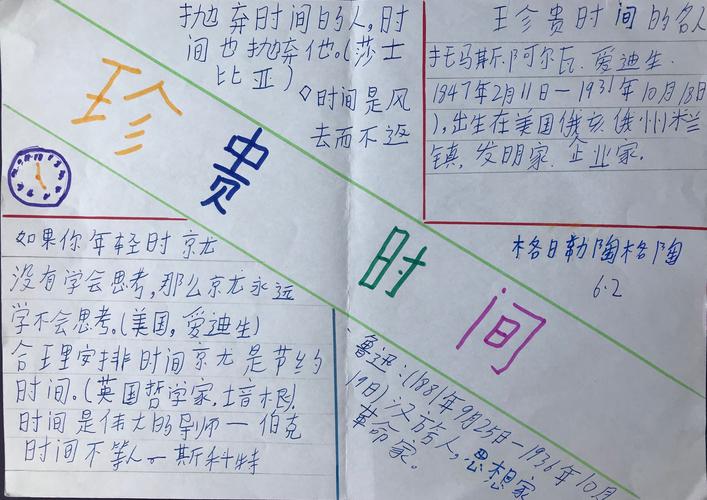 抛弃时间的人,时
间也抛弃他。(莎士
比亚)
◇时间是风
去而不返
珍贵时间
王珍贵时间的名人
托马斯.阿尔瓦.爱迪生.
1847年2月11日一1931年10月18日
),出生在美国俄亥俄州米兰
镇,发明家.企业家.
格日勒陶格陶
6.2
如果你年轻时京尤
没有学会思考,那么京尤永远
学不会思考.(美国,爱迪生)
合王里安排时间京尤是节约
时间。(英国哲学家.培根)
时间是伟大的导师一伯克
时间不等人一斯科特
鲁迅:(1881年9月25日-1936年10月
19日)汉族人,思想家
革命家。